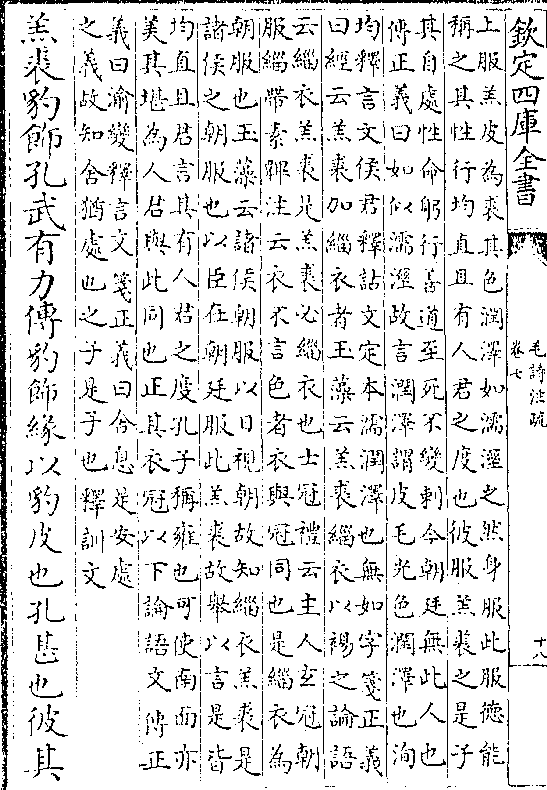 欽定四庫全書
毛詩注疏
卷七
十八
上服羔皮為裘其色潤澤如濡溼之然身服此服德能
稱之其性行均直且有人君之度也彼服羔裘之是子
其自處性命躬行善道至死不變刺今朝廷無此人也
傳正義曰如似濡溼故言潤澤謂皮毛光色潤澤也洵
均釋言文侯君釋詁文定本濡潤澤也無如字箋正義
曰經云羔裘加緇衣者玉藻云羔裘緇衣以裼之論語
云緇衣羔裘是羔裘必緇衣也士冠禮云主人玄冠朝
服緇帶素韠注云衣不言色者衣與冠同也是緇衣為
朝服也玉藻云諸侯朝服以日視朝故知緇衣羔裘是
諸侯之朝服也以臣在朝廷服此羔裘故舉以言是皆
均直且君言其有人君之度孔子稱雍也可使南面亦
美其堪為人君與此同也正其衣冠以下論語文傳正
義曰渝變釋言文箋正義曰舍息是安處
之義故知舍猶處也之子是子也釋訓文
羔裘豹飾孔武有力傳豹飾緣以豹皮也孔甚也彼其